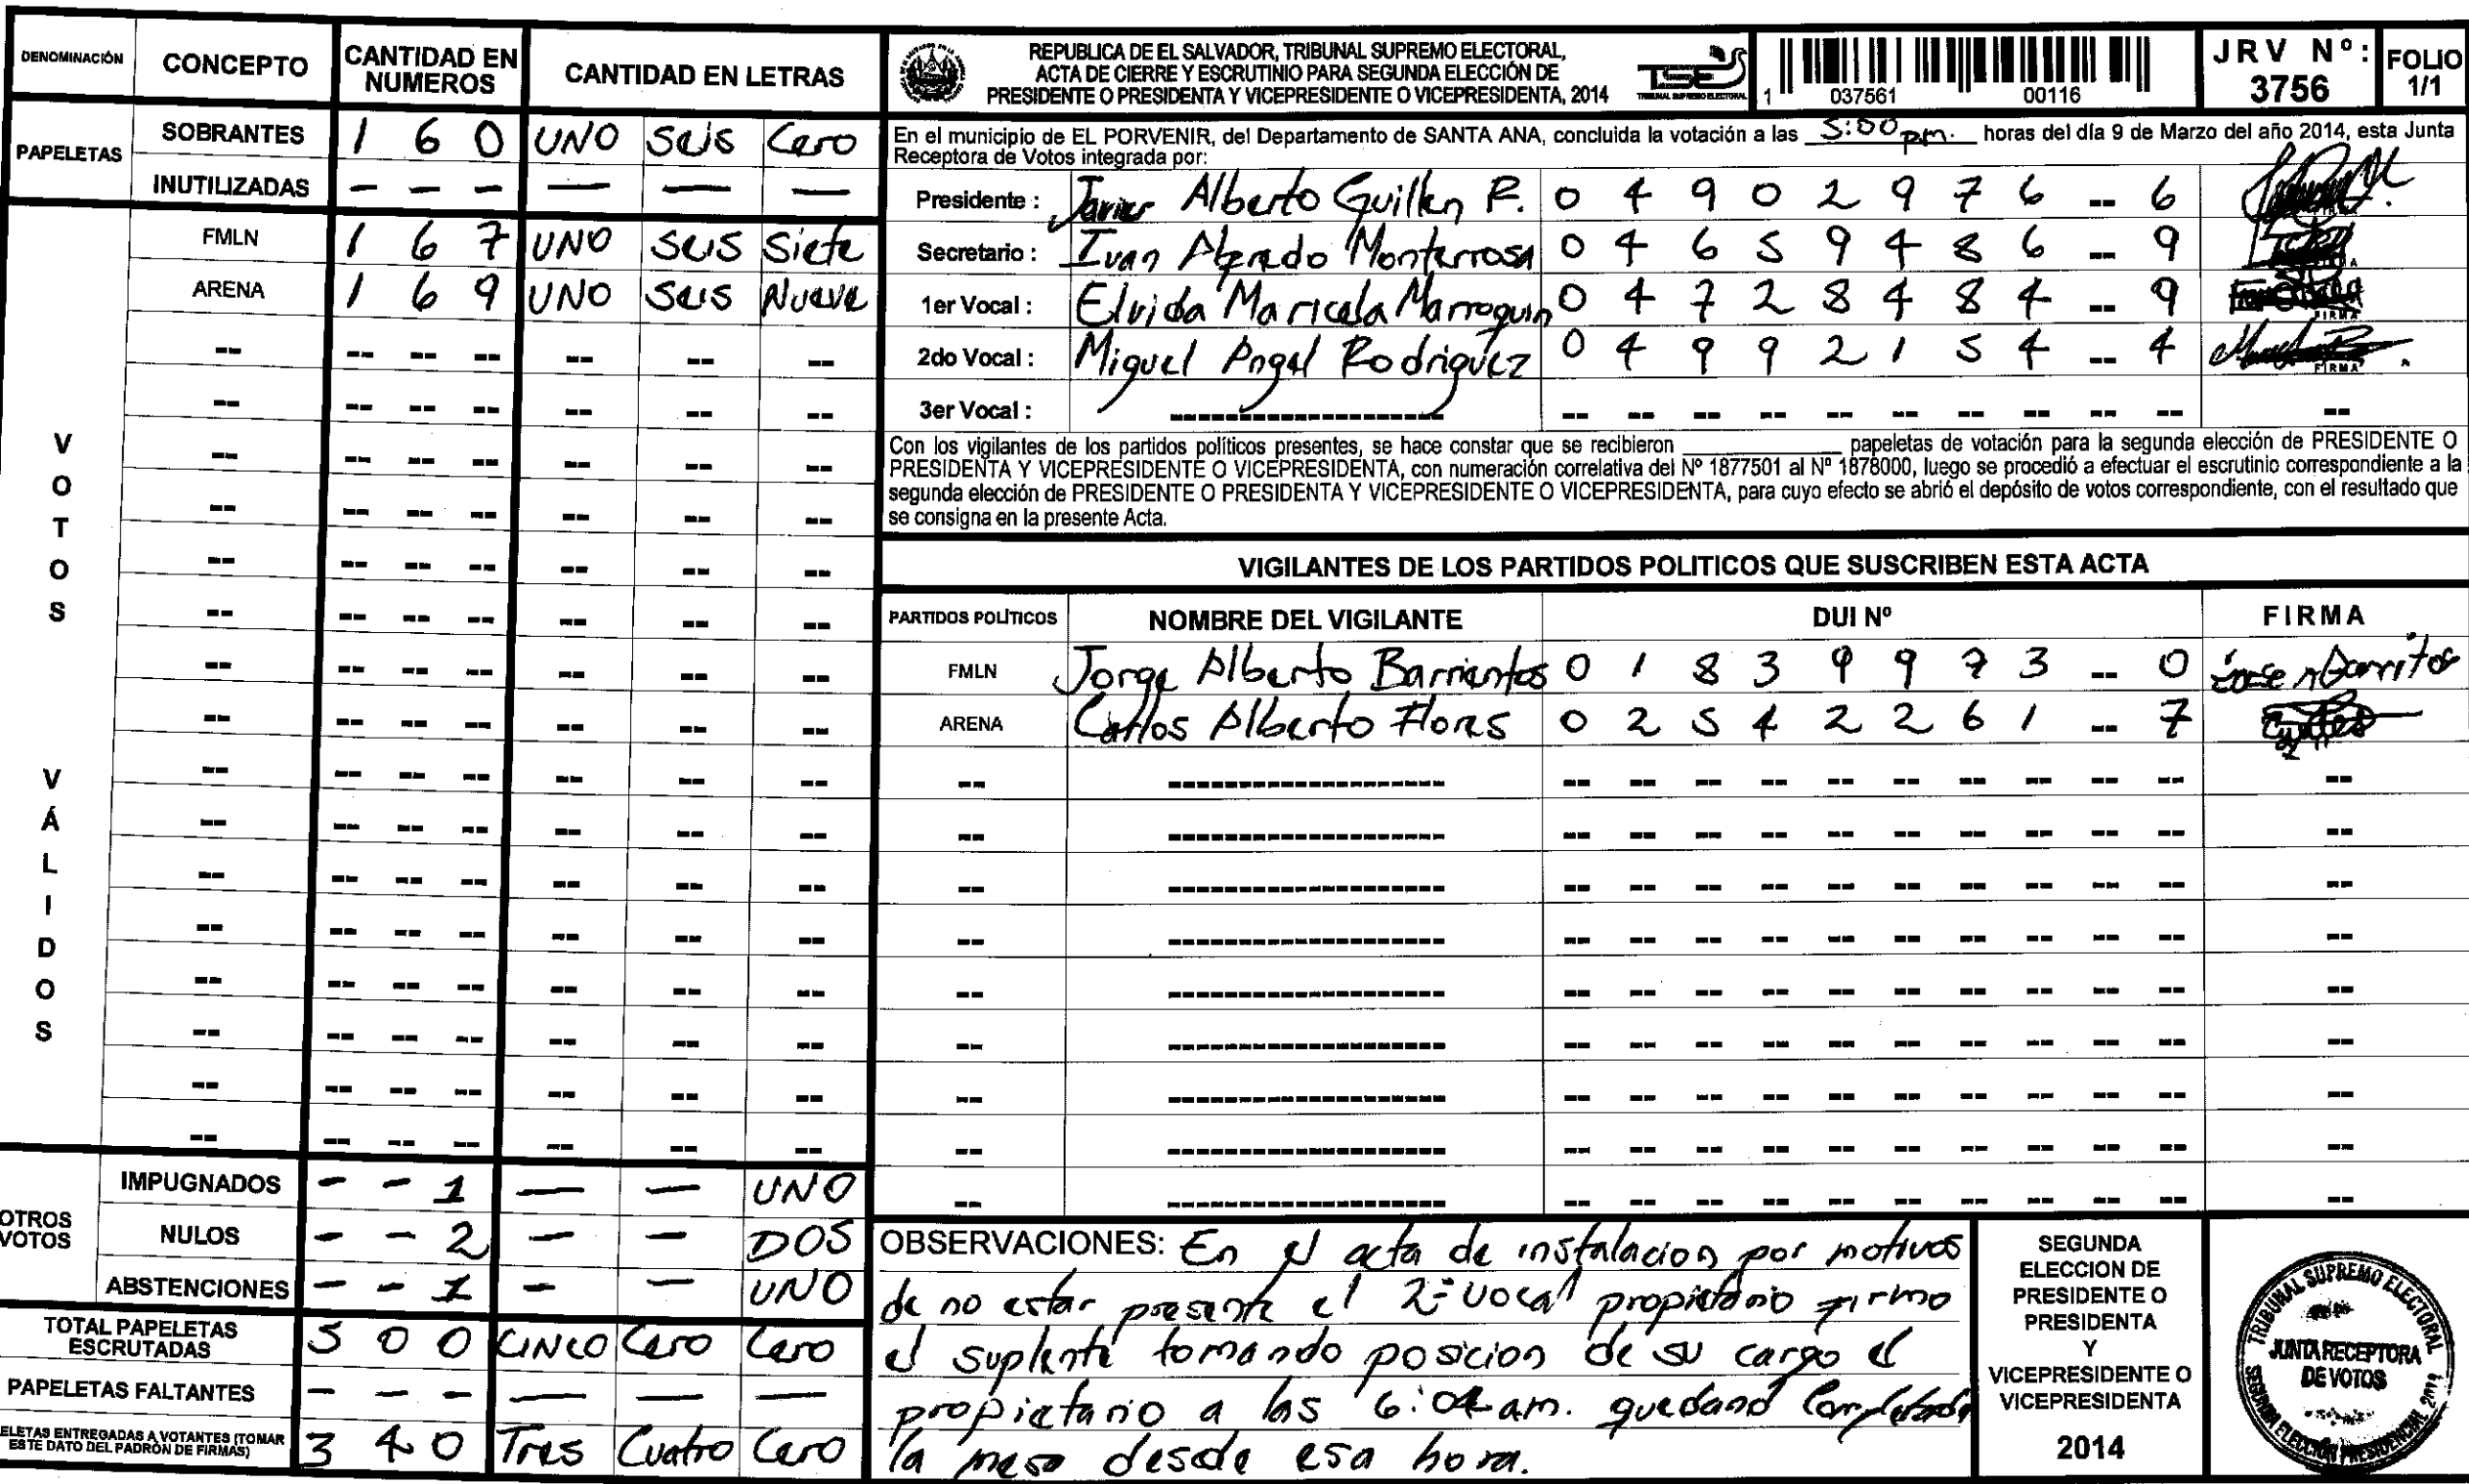 DENOMINACIÓN CONCEPTO CANTIDAD EN NUMEROS CANTIDAD EN LETRAS
PAPELETAS SOBRANTES 1 6 0 UNO Seis Cero
INUTILIZADAS - - - - - -
VOTOS VÁLIDOS
FMLN 1 6 7 UNO Seis Siete
ARENA 1 6 9 UNO Seis Nueve
OTROS VOTOS
IMPUGNADOS - - 1 - - UNO
NULOS - - 2 - - DOS
ABSTENCIONES - - 1 - - UNO
TOTAL PAPELETAS ESCRUTADAS 5 0 0 CINCO Cero Cero
PAPELETAS FALTANTES - - - - - -
ELETAS ENTREGADAS A VOTANTES (TOMAR
ESTE DATO DEL PADRÓN DE FIRMAS) 3 4 0 Tres Cuatro Cero
REPUBLICA DE EL SALVADOR, TRIBUNAL SUPREMO ELECTORAL,
ACTA DE CIERRE Y ESCRUTINIO PARA SEGUNDA ELECCIÓN DE
PRESIDENTE O PRESIDENTA Y VICEPRESIDENTE O VICEPRESIDENTA, 2014
TSE
TRIBUNAL SUPREMO ELECTORAL
1 037561 00116
JRV Nº: 3756
FOLIO 1/1
En el municipio de EL PORVENIR, del Departamento de SANTA ANA, concluida la votación a las 5:00 pm. horas del día 9 de Marzo del año 2014, esta Junta
Receptora de Votos integrada por:
Presidente : Javier Alberto Guillen R. 0 4 9 0 2 9 7 6 -- 6
Secretario : Ivan Monterrosa 0 4 6 5 9 4 8 6 -- 9
1er Vocal : Elvida Maricela Marroquin 0 4 7 2 8 4 8 4 -- 9
2do Vocal : Miguel Angel Rodriguez 0 4 9 9 2 1 5 4 -- 4
3er Vocal :
FIRMA
Con los vigilantes de los partidos políticos presentes, se hace constar que se recibieron ________ papeletas de votación para la segunda elección de PRESIDENTE O
PRESIDENTA Y VICEPRESIDENTE O VICEPRESIDENTA, con numeración correlativa del Nº 1877501 al Nº 1878000, luego se procedió a efectuar el escrutinio correspondiente a la
segunda elección de PRESIDENTE O PRESIDENTA Y VICEPRESIDENTE O VICEPRESIDENTA, para cuyo efecto se abrió el depósito de votos correspondiente, con el resultado que
se consigna en la presente Acta.
VIGILANTES DE LOS PARTIDOS POLITICOS QUE SUSCRIBEN ESTA ACTA
PARTIDOS POLÍTICOS NOMBRE DEL VIGILANTE DUI Nº FIRMA
FMLN Jorge Alberto Barrientos 0 1 8 3 9 9 7 3 -- 0
ARENA Carlos Alberto Flores 0 2 5 4 2 2 6 1 -- 7
OBSERVACIONES: En el acta de instalacion por motivos
de no estar presente el 2º vocal propietario firmo
el suplente tomando posicion de su cargo el
propietario a las am. quedand
la mesa desde esa hora.
SEGUNDA
ELECCION DE
PRESIDENTE O
PRESIDENTA
Y
VICEPRESIDENTE O
VICEPRESIDENTA
2014
TRIBUNAL SUPREMO ELECTORAL
JUNTA RECEPTORA
DE VOTOS
SEGUNDA ELECCIÓN PRESIDENCIAL 2014